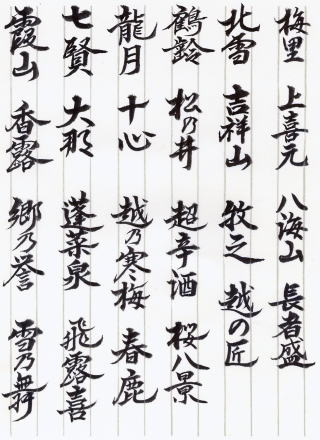 梅里 上喜元 八海山 長者盛
北雪 吉祥山 牧之 越の匠
鶴齢 松乃井 超辛酒 桜八景
龍月 十心 越乃寒梅 春鹿
七賢 大那 蓬莱泉 飛露喜
霞山 香露 郷乃誉 雪乃舞